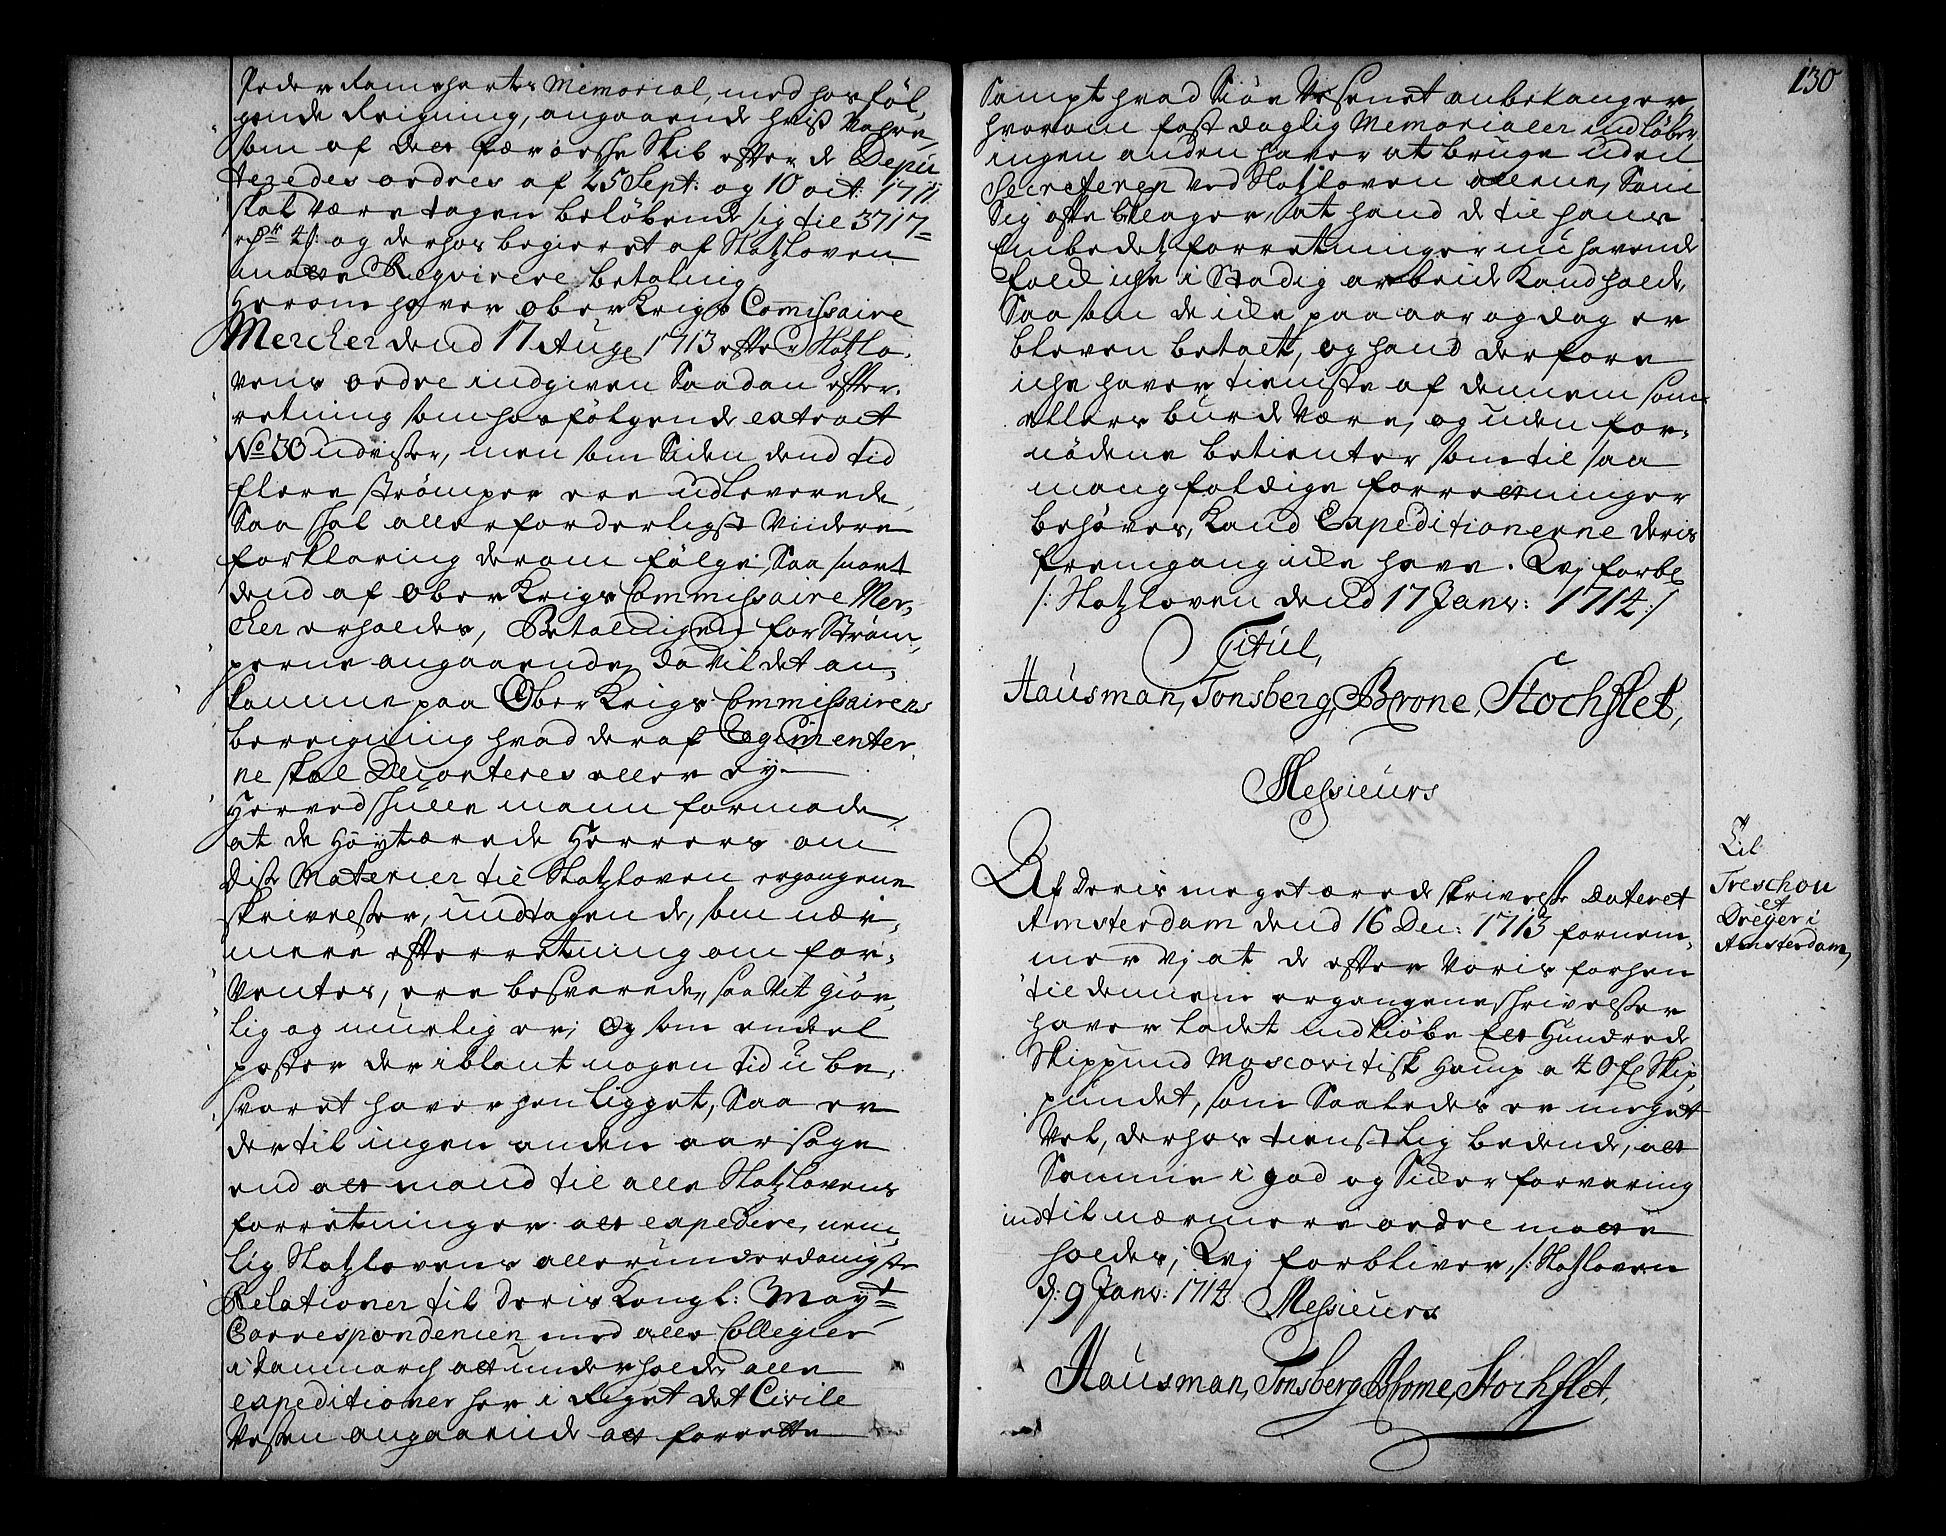 Peder Ramsharts Memorial, med hosföl,
gende Reigning, angaaende hvis Vahre,
som af det færöeske Skib efter de Depu
teredes ordres af 25 Sept: og 10 oct: 1711
skal være tagen belöbende sig til 3717=
rdr 4 s: og derhos begieret af Slotzloven
maatte Reqvirere betaling
Herom haver Ober Krigs Commissaire
Mercker dend 17 Aug 1713 efter Slotzlo,
vens ordre indgiven Saadan efter,
retning som hosfölgende extract
No 30 udviser, men som Siden dend tid
flere strömper ere udleverede,
Saa skal allerforderligst Viidere
forklaring derom fölge, Saa snart
dend af Ober Krigs Commissaire Mer,
cker erholdes, Betalingen for Ström,
perne angaaende, da Vil det an,
komme paa Ober Krigs Commissairens
bereigning hvad deraf Regimenter,
ne skal Decorteres eller ey
Herved skulle mann formode,
at de Höytærede Herrers om
disse Materier til Slotzloven ergangene
skrivelser, undtagen de, som nær,
mere efterretning om for,
Ventes, ere besvarede, saa Vit giör,
lig og muelig er; Og som endeel
poster der iblant nogen tid u be,
svaret haver hen ligget, Saa er
dertil ingen anden aarsage
end att mand til alle Slotzlovens
forretninger att expedere, nem,
lig Slotzlovens allerunderdanigste
Relationer til Deris Kongl: Mayt=
Correspondencen med alle Collegier
i Danmarck att underholde, alle
expeditioner her i Riget det Civile
Vesen angaaende att forrette
130
Sampt hvad Siöe Vesenet anbelanger,
hvorom fast daglig Memorialer indlöber
ingen anden haver at bruge uden
Secreteren Ved Slotzloven allene, Som
Sig ofte beklager, at hand de til hans
Embedet forretninger nu havende
folk iche i Stadig arbeide Kand holde,
Saa som de icke paa aar og dag er
bleven betalt, og hand derfore
iche haver tieniste af dennem som
ellers burde Være, og uden for,
nödene betienter som til saa
mangfoldige forretninger
behöves, Kand Expeditionerne deris
fremgang icke have. Vj forbl
/: Slotzloven dend 17 Janv: 1714 :/
Titul,
Hausman, Tonsberg, Brone, Stochflet,
Messieurs
Til
Treschou
et
Dreyer i
Amsterdam,
Af Deris meget ærede skrivelse dateret
Amsterdam dend 16 Dec: 1713 fornem,
mer Vj at de efter Voris forhen
til dennem ergangene schrivelser
haver ladet indkiöbe Ett Hundrede
Skippund Moscovitisk Hamp a 40 fl Skip
pundet, som Saaledes er meget
Vel, derhos tienstlig bedende, att
Samme i god og Sicker forvaring
indtil nærmere ordre maatte
holdes, Vj forbliver, /: Slotzloven
d: 9 Janv: 1714 Messieurs
Hausman, Tonsberg, Brone, Stochflet,